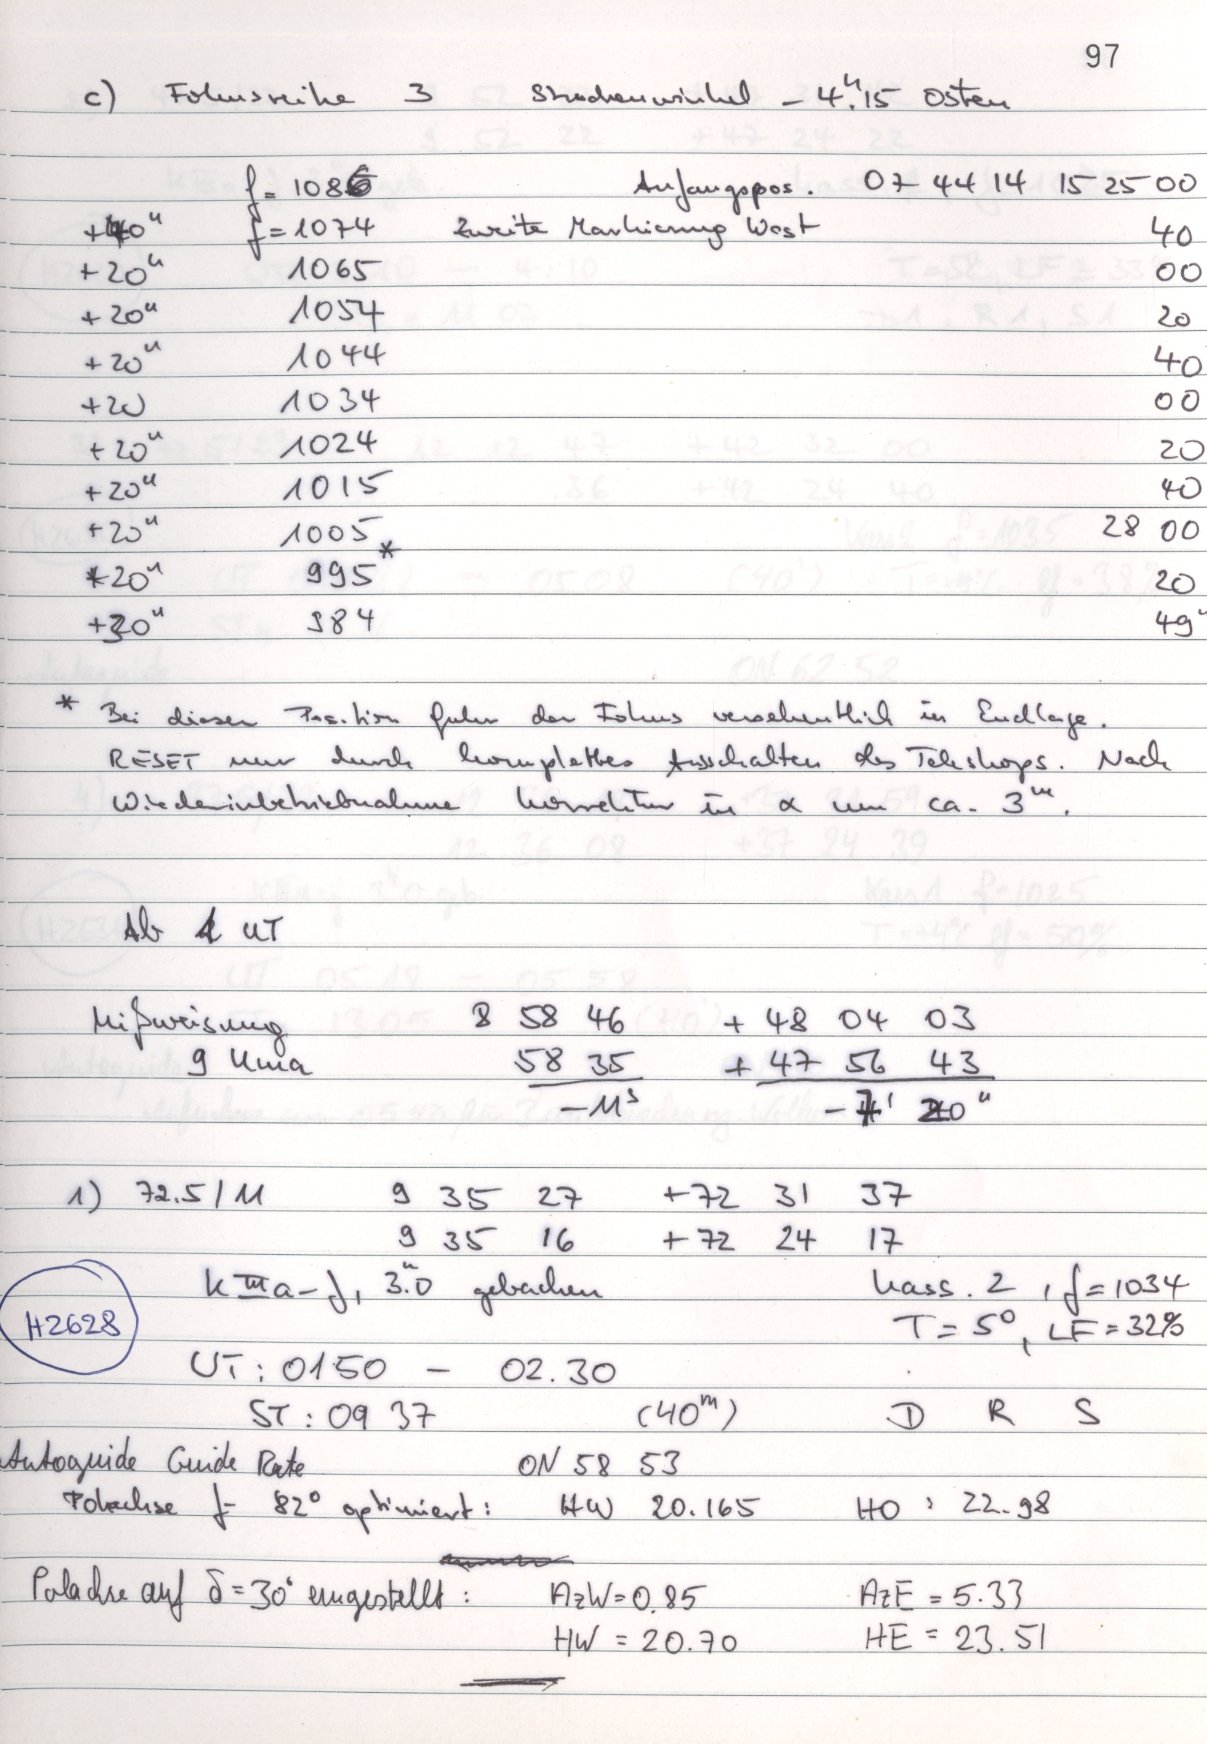 97
c) Fokusreihe 3 Stundenwinkel - 4.ʰ15 Osten
f = 1086 Anfangspos. 07 44 14 15 25 00
+40" f = 1074 Zweite Markierung West 40
+20" 1065 00
+20" 1054 20
+20" 1044 40
+20 1034 00
+20" 1024 20
+20" 1015 40
+20" 1005 28 00
+20" 995* 20
+30" 984 49"
* Bei dieser Position fuhr der Fokus versehentlich in Endlage.
RESET nur durch komplettes Ausschalten des Teleskops. Nach
Wiederinbetriebnahme Korrektur in α um ca. 3ᵐ.
Ab 1 UT
Mißweisung 8 58 46 + 48 04 03
9 Uma 58 35 + 47 56 43
-11ˢ -7' 20"
1) 72.5/11 9 35 27 +72 31 37
9 35 16 +72 24 17
k IIIa-J, 3.ʰ0 gebacken Kass. 2, f = 1034
H2628 T = 5°, LF = 32%
UT: 01 50 - 02.30
ST: 09 37 (40ᵐ) D R S
Autoguide Guide Rate ON 58 53
Polachse f 82° optimiert: HW 20.165 HO: 22.98
Polachse auf δ = 30° eingestellt: AzW = 0.85 AzE = 5.33
HW = 20.70 HE = 23.51